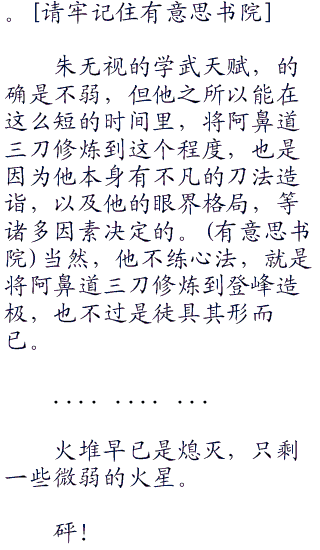 。[请牢记住有意思书院]
朱无视的学武天赋，的
确是不弱，但他之所以能在
这么短的时间里，将阿鼻道
三刀修炼到这个程度，也是
因为他本身有不凡的刀法造
诣，以及他的眼界格局，等
诸多因素决定的。(有意思书
院)当然，他不练心法，就是
将阿鼻道三刀修炼到登峰造
极，也不过是徒具其形而
已。
.... .... ...
火堆早已是熄灭，只剩
一些微弱的火星。
砰！